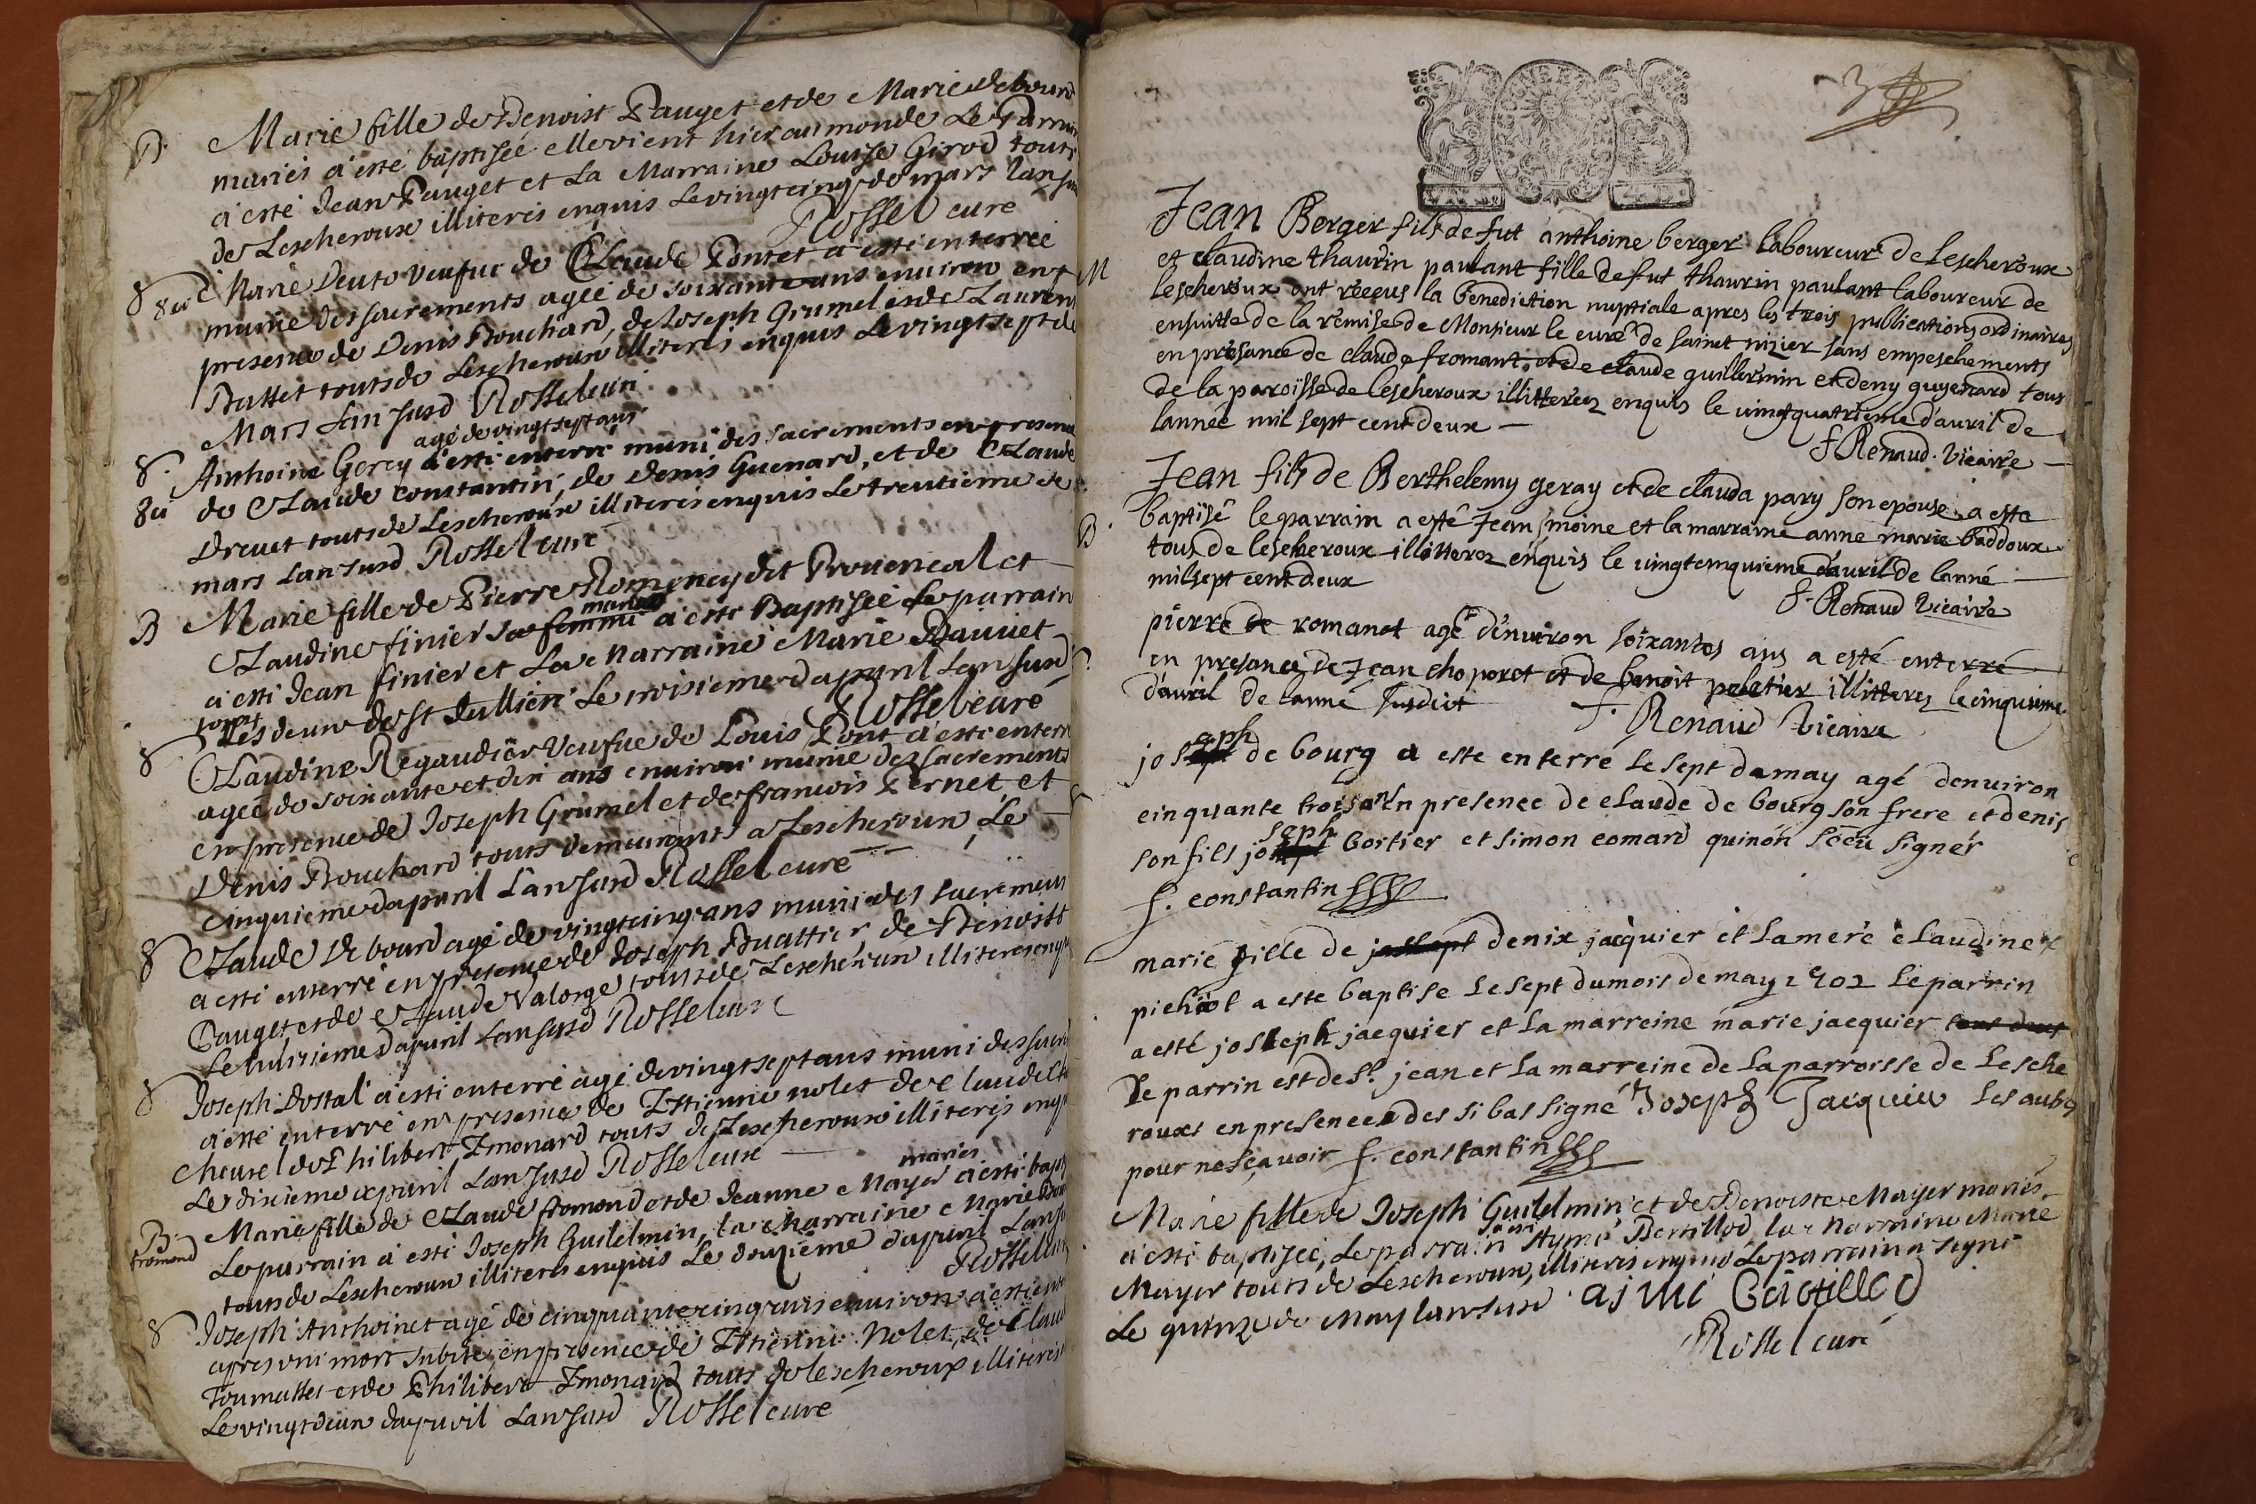 B. Marie fille de Benoist Pauget et de Marie debourd
mariés a esté baptisée elle vient hier au monde Le Parrain
a esté Jean Pauget et La Marraine Louise Girod touts
de Lescheroux illiteres enquis Le vingt cinq de mars Lan susd
Rossel curé
S Marie veufue de Claude Poncet a esté enterrée
munie des sacrements agée de soixante ans environ en
presence de Denis Bouchard, de Joseph Grumel et de Laurent
Battet touts de Lescheroux illiteres enquis Le vingt sept de
Mars Lan susd Rossel curé
agé de vingt sept ans
S. Anthoine Gerey a esté enterré muni des sacrements en presence
de Claude Constantin, de Denis Guenard, et de Claude
Dreuet touts de Lescheroux illiteres enquis Le trentieme de
mars Lan susd Rossel curé
B Marie fille de Pierre Romeney dit Prouencal et
Claudine finier sa femme mariés a esté Baptisée Le parrain
a esté Jean finier et La Marraine Marie Bauuet
touts Les deux de St Jullien Le troisieme dapuril Lan susd
Rossel curé
S Claudine Regaudier Veufue de Louis Pont a esté enterré
agée de soixante et dix ans environ munie des sacrements
en presence de Joseph Grumel et de francois Pernet et
Denis Bouchard touts demeurants a Lescheroux Le
cinquieme dapuril Lan susd Rossel curé
S Claude De bourd agé de vingt cinq ans muni des sacrements
a esté enterré en presence de Joseph Buattier de Benoist
Pauget et de Claude Valorge touts de Lescheroux illiteres enquis
Le huitieme dapuril Lan susd Rossel curé
S Joseph Dostal a esté enterré agé de vingt sept ans muni des sacr
a esté enterré en presence de Ettienne nolet de Claude
cheurel de Philibert Emonard touts de Lescheroux illiteres enqu
Le dixieme dapuril Lan susd Rossel curé
B. fromond Marie fille de Claude fromond et de Jeanne Mayer mariés a esté bapt
Le parrain a esté Joseph Guilelmin, la Marraine Marie
touts de Lescheroux illiteres enquis Le douzieme dapuril Lan su
Rossel cur
S Joseph Anthoinet agé de cinquante cinq ans environ a esté ent
apres uni mort subite, en presence de Ettienne Nolet, de Claud
Tournasset et de Philibert Emonard touts de lescheroux illiteres
Le vingt deux dapuril Lan susd Rossel curé
3
Jean Berger fils de fut anthoine berger laboureur de Lescheroux
M et claudine thaurin paulant fille de fut thaurin paulant laboureur de
lescheroux ont reçeus la benediction nuptiale apres les trois publications ordinaires
ensuitte de la remise de Monsieur le curé de sainct nizier sans empeschements
en presance de claude fromant, et de claude guillermin et deny guyenard tous
de la paroisse de lescheroux illitterez enquis le vingt quatrieme dauril de
lannée mil sept cent deux
f Renaud. Vicaire
B. Jean fils de Berthelemy geray et de clauda pary son epouse a este
baptisé le parrain a esté Jean moine et la marraine anne marie baddoux
tous de lescheroux illitterez enquis le vingt cinquieme dauril de lanné
mil sept cent deux
f. Renaud Vicaire
pierre de romanet agé denuiron soixantes ans a esté enterré
en presance de Jean choporet et de benoit peletier illitterez le cinquieme
dauril de lanné susdict
f. Renaud Vicaire
joseph de bourg a este enterré le sept de may agé denuiron
cinquante trois an en presence de claude de bourg son frere et denis
son fils joseph bortier et simon comard qui non sceu signer
f. constantin
marie fille de denix jacquier et la mere claudine
pichot a este baptise le sept du mois de may 1702 le parrin
a esté joseph jacquier et la marreine marie jacquier
le parrin est de St. jean et la marreine de la parroisse de lesche
roux en presence des si bas signé Joseph Jacquier les aubes
pour ne sçavoir f. constantin
Marie fille de Joseph Guilelmin et de Benoiste Mayer mariés
a esté baptisée, Le parrain a esté Aymé Bertillod, la Marraine Marie
Mayer touts de Lescheroux, illiteres enquis Le parrain a signé
Le quinze de May lan susd. aimé
Rossel curé